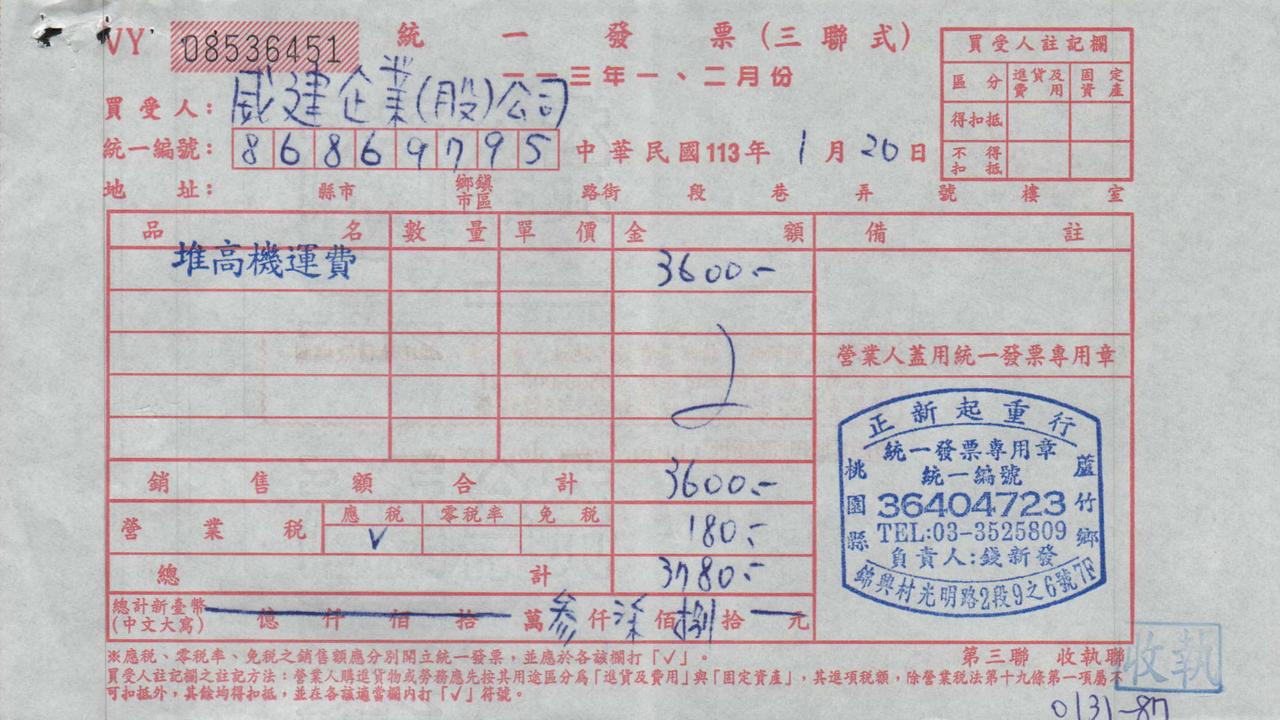 VY 08536451 統一發票(三聯式)
一一三年一、二月份
買受人註記欄
區分 進貨及費用 固定資產
得扣抵
不得扣抵
買受人: 威建企業(股)公司
統一編號: 86869795 中華民國113年1月20日
地址: 縣市 鄉鎮市區 路街 段 巷 弄 號 樓 室
品名 數量 單價 金額 備註
堆高機運費 3600.-
營業人蓋用統一發票專用章
銷售額合計 3600.-
營業稅 應稅 零稅率 免稅 180.-
✓
總計 3780.-
總計新臺幣(中文大寫) 億仟佰拾萬參仟柒佰捌拾元
正新起重行
統一發票專用章
統一編號
36404723
TEL:03-3525809
負責人:錢新發
桃園縣
蘆竹鄉
錦興村光明路2段9之6號7F
※應稅、零稅率、免稅之銷售額應分別開立統一發票,並應於各該欄打「✓」。
第三聯 收執聯
收執
買受人註記欄之註記方法:營業人購進貨物或勞務應先按其用途區分為「進貨及費用」與「固定資產」,其進項稅額,除營業稅法第十九條第一項屬不
可扣抵外,其餘均得扣抵,並在各該適當欄內打「✓」符號。
0131-87